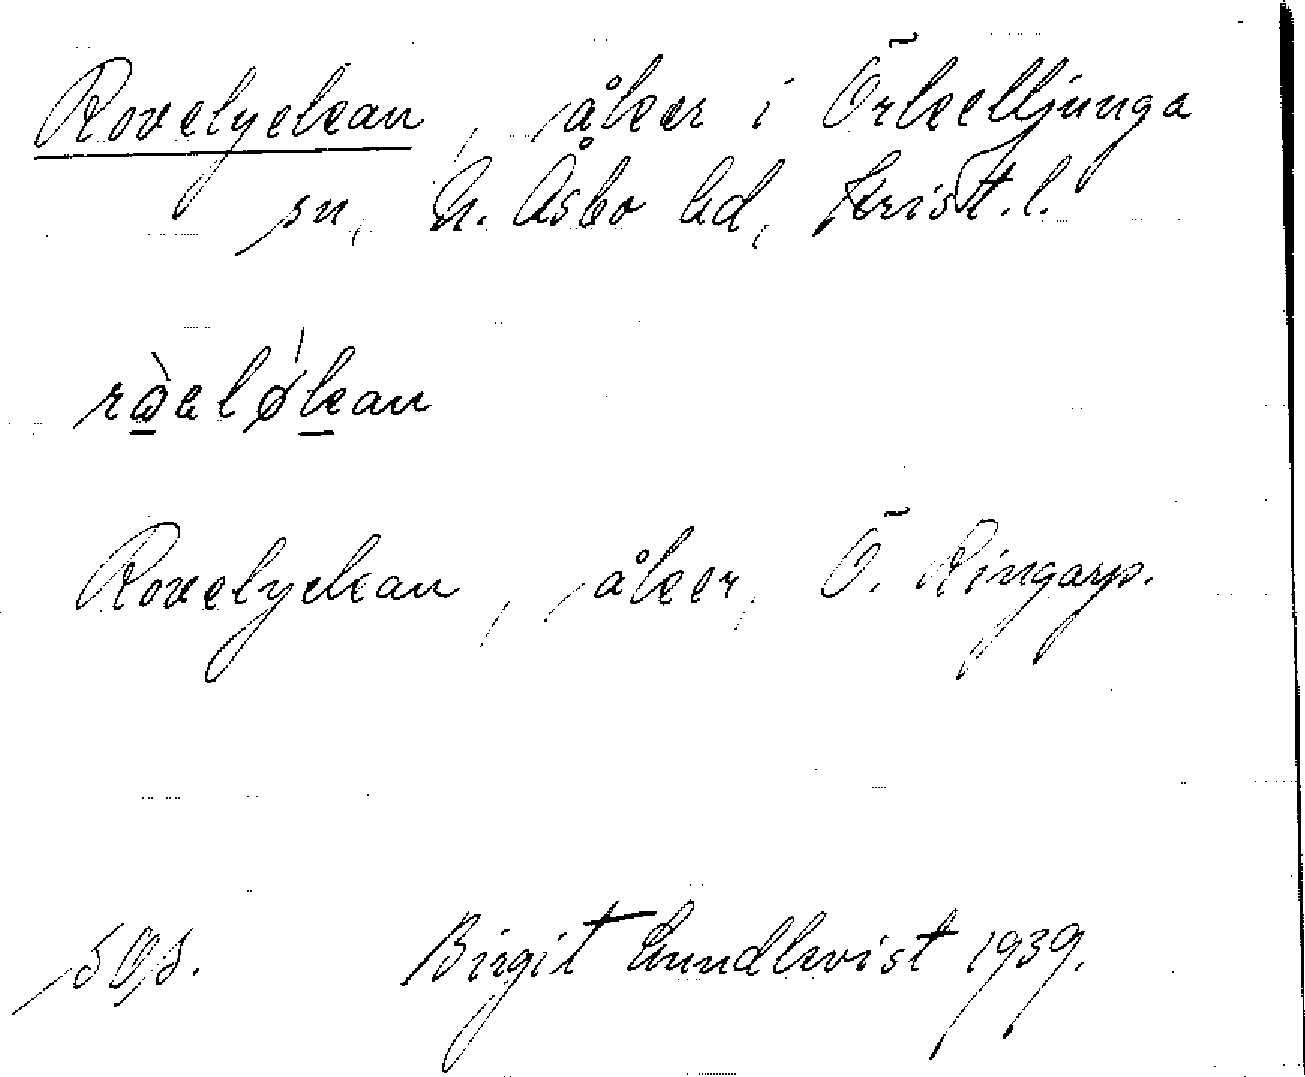 Rovelyckan, åker i Örkelljunga
sn, N. Åsbo hd, Krist. l.
Rovelyckan, åker, Ö. Ringarp.
Birgit Lundkvist 1939.